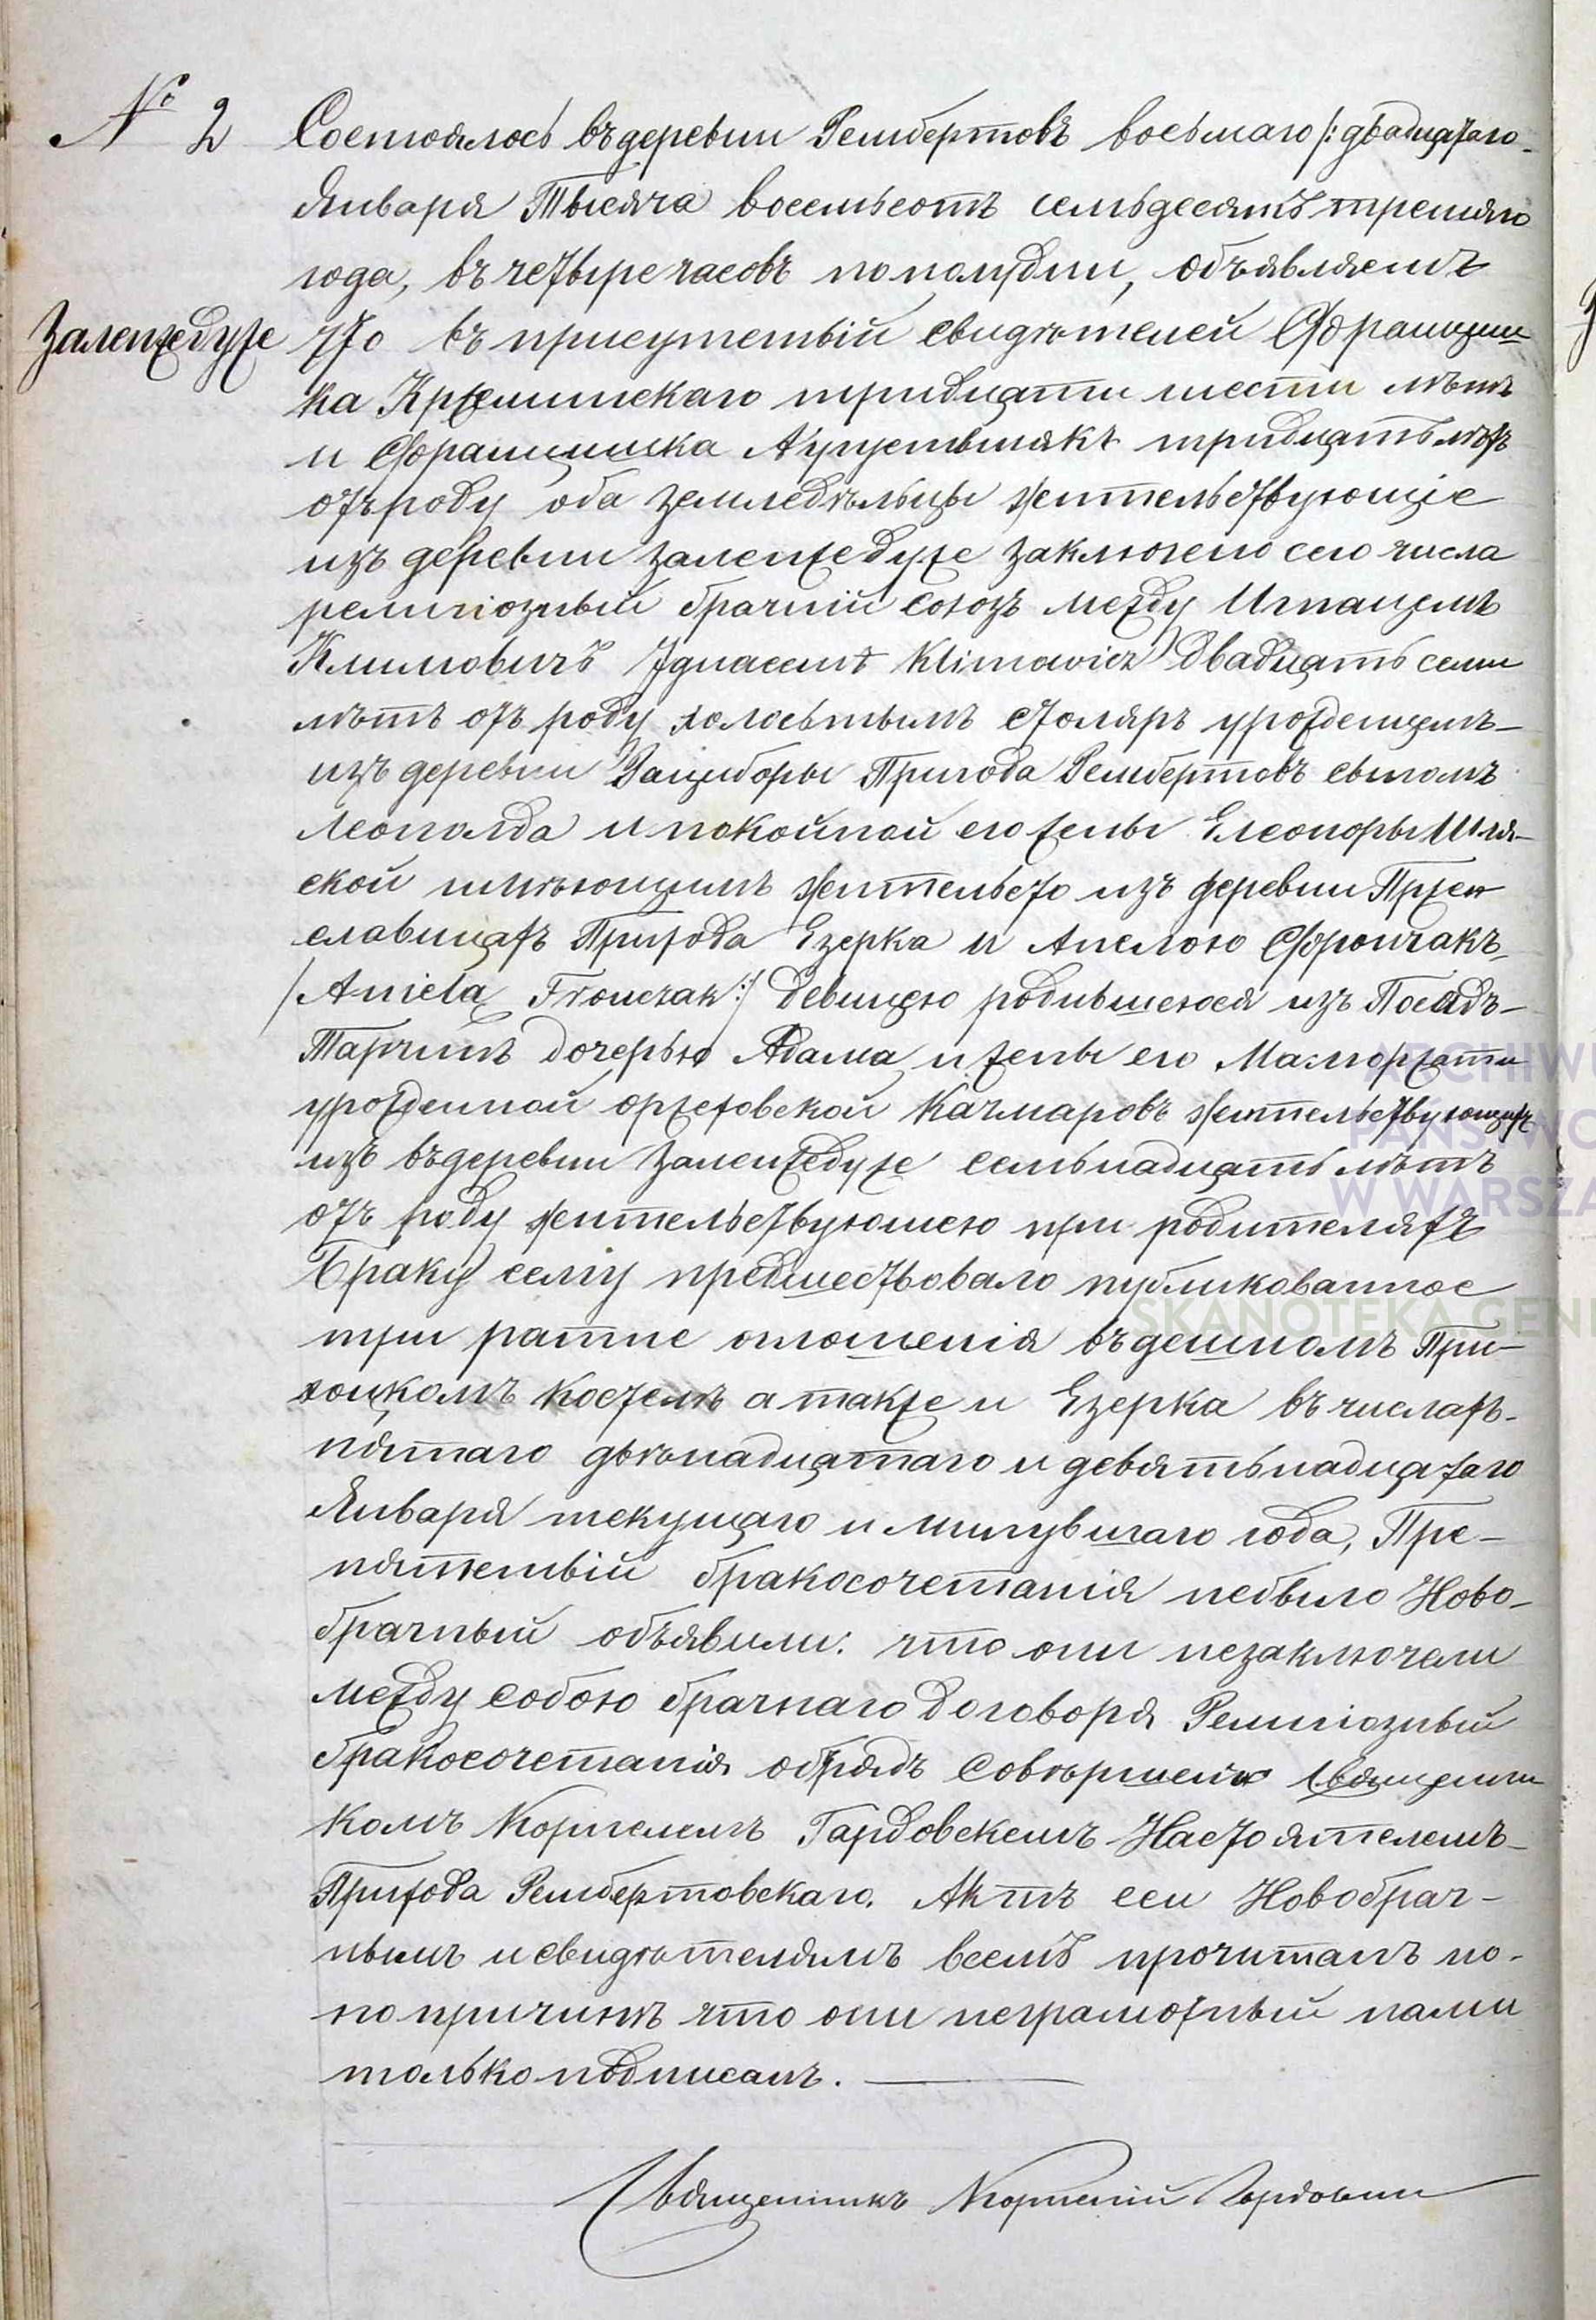 № 2 Состоялось въ деревни Рембертовъ восьмаго /: двадцатаго
Января Тысяча восемьсотъ семьдесятъ третяго
года, въ четыре часовъ пополудни, объявляемъ
Заленжедуже что въ присутствій свидѣтелей Франциш-
ка Кржеминскаго тридцати шести лѣтъ
и Францишка Аугустыняка тридцать лѣтъ
отъ роду оба земледѣльцы жительствующіе
изъ деревни Заленжедуже заключено сего числа
религіозный брачній союзъ между Игнацемъ
Климовичъ Ignacem Klimowicz двадцать семи
лѣтъ отъ роду холостымъ столяръ урожденцемъ
изъ деревни Рациборы Прихода Рембертовъ сыномъ
Леопольда и покойной его жены Елеоноры
ской имѣющимъ жительсто изъ деревни Прже
славицахъ Прихода Езерка и Анелою Фрончакъ
/Aniela Fronczak:/ девицею родившеюся изъ Посадъ
Тарчинъ дочерью Адама и жены его Малгоржати
урожденной оржеховской Качмаровъ жительствующихъ
изъ въ деревни Заленжедуже семьнадцать лѣтъ
отъ роду жительствующею при родителяхъ
Браку сему предшествовало публикованное
три ратне оглошенія въ дешномъ При-
хоцкомъ костелѣ а также и Езерка въ числахъ
пятаго двѣнадцатаго и девятьнадцатаго
Января текущаго и минувшаго года, Пре-
пятствій бракосочетанія небыло Ново-
брачный объявили: что они незаключали
между собою брачнаго договоря Религіозный
бракосочетанія обрядъ совѣршенъ Священни
комъ Корнелемъ Гардовскемъ Настоятелемъ
Прихода Рембертовскаго. Актъ сеи Новобрач-
нымъ и свидѣтелямъ всемъ прочитанъ но
по причинѣ что они неграмотный нами
только подписанъ.
Священникъ Корнелій